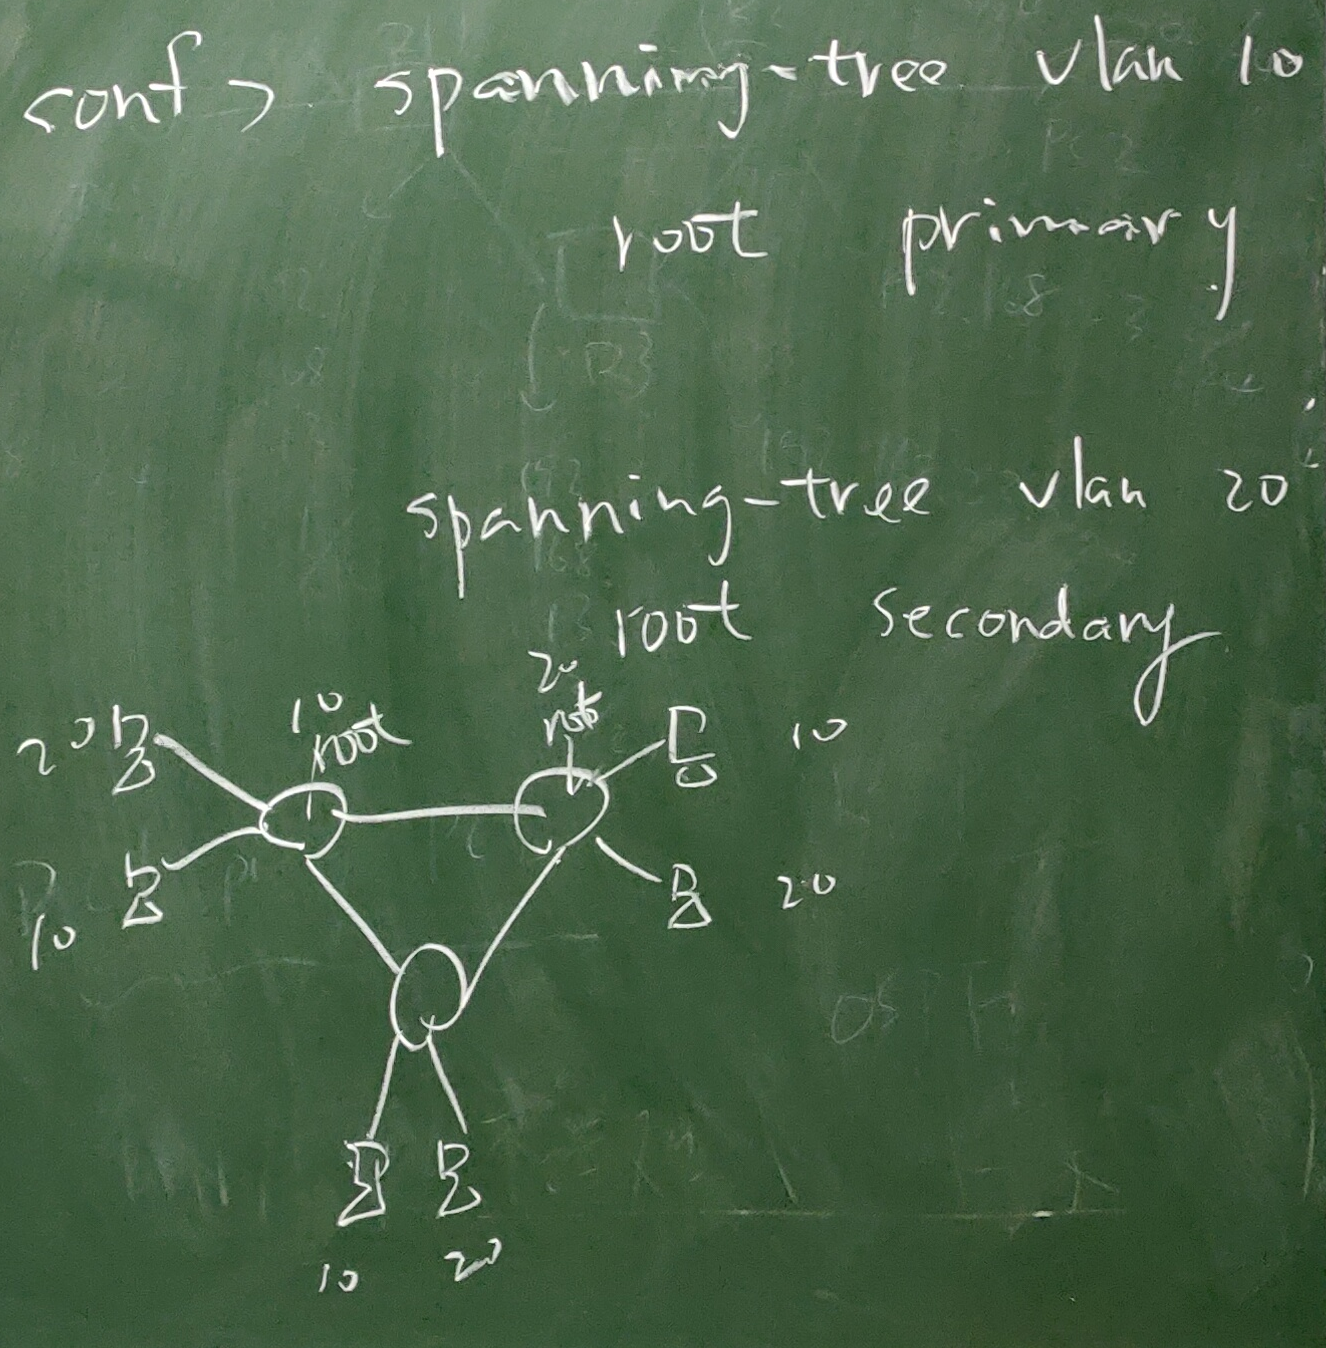 conf> spanning-tree vlan 10
root primary
spanning-tree vlan 20
root secondary
20
10
root
20
root
10
10
20
10
20